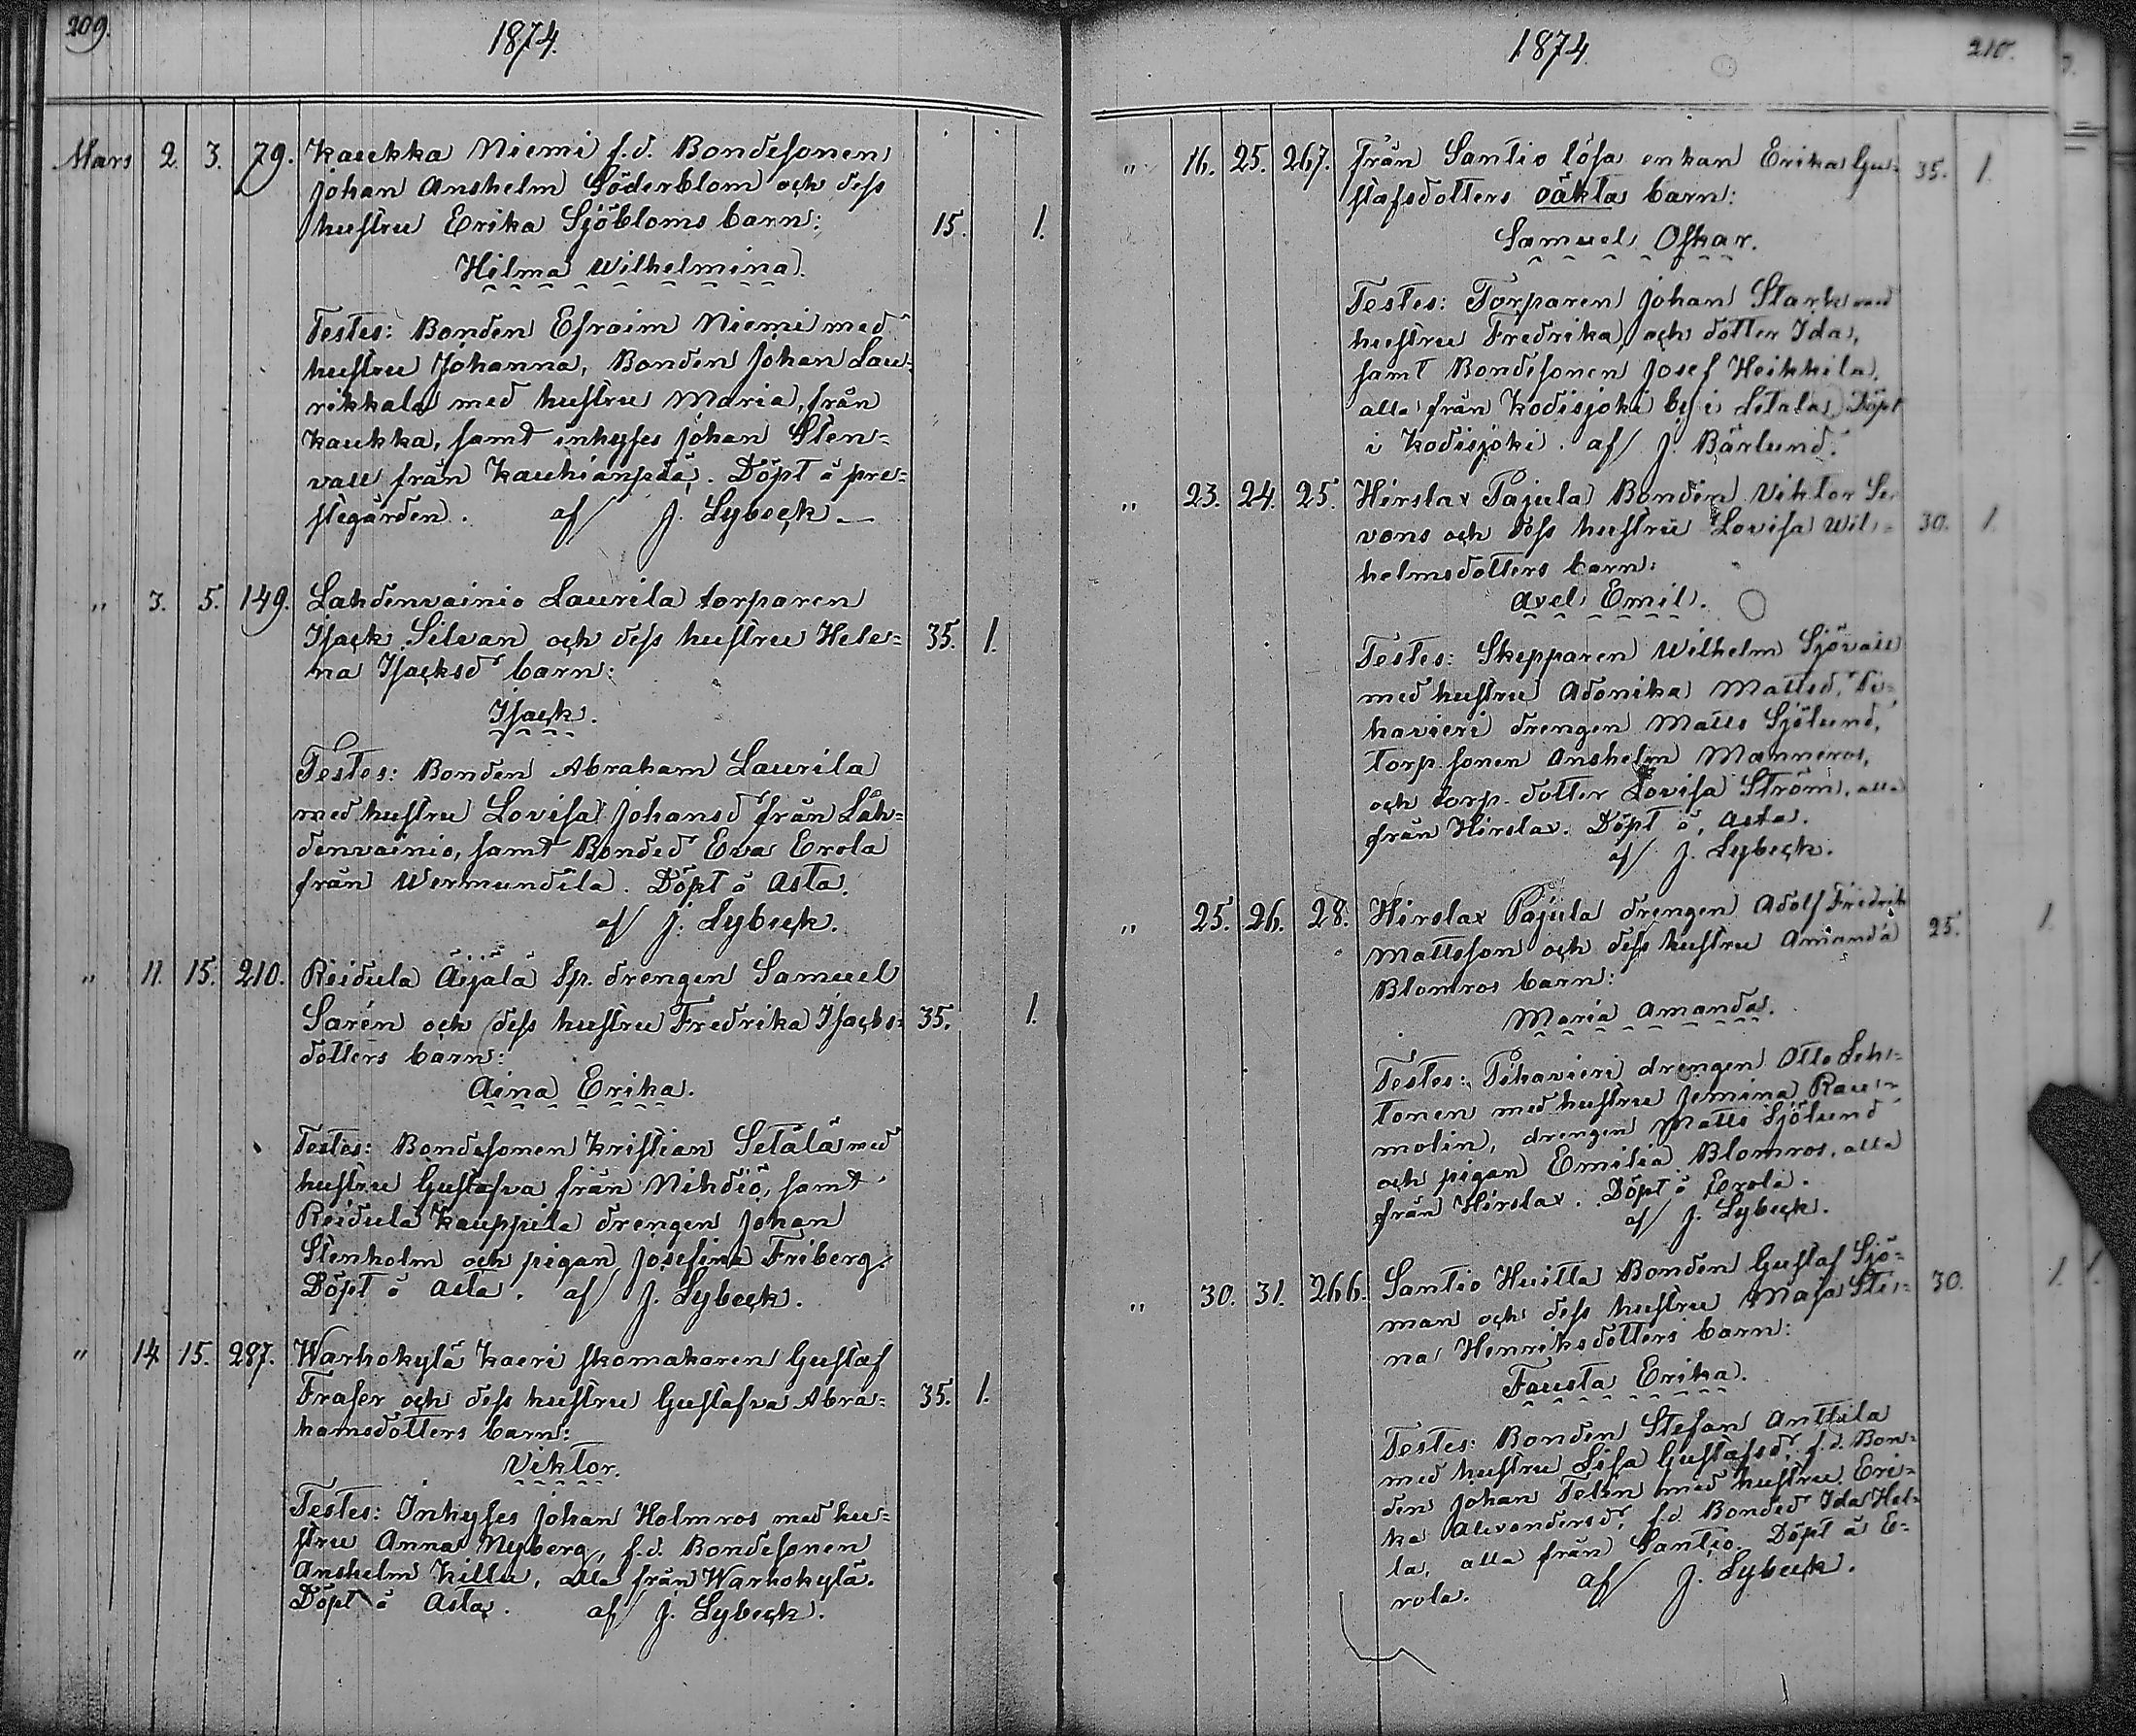 209.
1874.
Mars 2. 3. 79. Kaukka Niemi f.d. Bondesonen
Johan Anshelm Söderblom och dess
hustru Erika Sjöbloms barn: 15. 1.
Hilma Wilhelmina.
Testes: Bonden Efraim Niemi med
hustru Johanna, Bonden Johan Lau-
rikkala med hustru Maria, från
Kaukka, samt inhyses Johan Sten-
vall från Kauhianpää. Döpt å pre-
stegården. af J. Lybeck.
" 3. 5. 149. Lahdenvainio Laurila torparen
Isack Silvan och dess hustru Hele- 35. 1.
na Isacksd barn:
Isack.
Testes: Bonden Abraham Laurila
med hustru Lovisa Johansd från Lah-
denvainio, samt Bonded Eva Erola
från Wermundila. Döpt å Asta.
af J. Lybeck.
" 11. 15. 210. Reidula Äijälä Sp. drengen Samuel
Sarén och dess hustru Fredrika Isacks- 35. 1.
dotters barn:
Aina Erika.
Testes: Bondesonen Kristian Setälä med
hustru Gustafva från Nihdiö, samt
Reidula Kauppila drengen Johan
Stenholm och pigan Josefina Friberg.
Döpt å Asta. af J. Lybeck.
" 14 15. 287. Warhokylä Kaeri skomakaren Gustaf
Fraser och dess hustru Gustafva Abra- 35. 1.
hamsdotters barn:
Viktor.
Testes: Inhyses Johan Holmros med hu-
stru Anna Nyberg, f.d. Bondesonen
Anshelm Killu, alla från Warhokylä.
Döpt å Asta. af J. Lybeck.
1874.
210.
" 16. 25. 267. Från Santio lösa enkan Erika Gu- 35. 1.
stafsdotters oäkta barn:
Samuel Oskar.
Testes: Torparen Johan Stark med
hustru Fredrika och dotter Ida,
samt Bondesonen Josef Heikkila,
alla från Kodisjoki by i Letala. Döpt
i Kodisjoki. af J. Bärlund.
" 23. 24. 25. Hirslax Pajula Bonden Viktor Ser
vons och dess hustru Lovisa Wil- 30. 1.
helmsdotters barn:
Axel Emil.
Testes: Skepparen Wilhelm Sjövall
med hustru Adonika Mattsd,
havieri drengen Matts Sjölund,
torp. sonen Anshelm Manneros,
och torp. dotter Lovisa Ström, alla
från Hirslax. Döpt å Asta.
af J. Lybeck.
" 25. 26. 28. Hirslax Pajula drengen Adolf Fredrik
Mattsson och dess hustru Amanda 25. 1.
Blomros barn:
Maria Amanda.
Testes: Pihavieri drengen Otto Leh-
tonen med hustru Jemina Rau-
molin, drengen Matts Sjölund
och pigan Emilia Blomros, alla
från Hirslax. Döpt å Erola.
af J. Lybeck.
" 30. 31. 266. Santio Huitla Bonden Gustaf Sjö-
man och dess hustru Maja Sti- 30. 1. 1.
na Henriksdotters barn:
Fausta Erika.
Testes: Bonden Stefan Anttila
med hustru Lisa Gustafsd, f.d. Bon-
den Johan Telen med hustru Eri-
ka Alexandersd, f.d. Bonded Ida Hei-
la, alla från Santio. Döpt å E-
rola. af J. Lybeck.